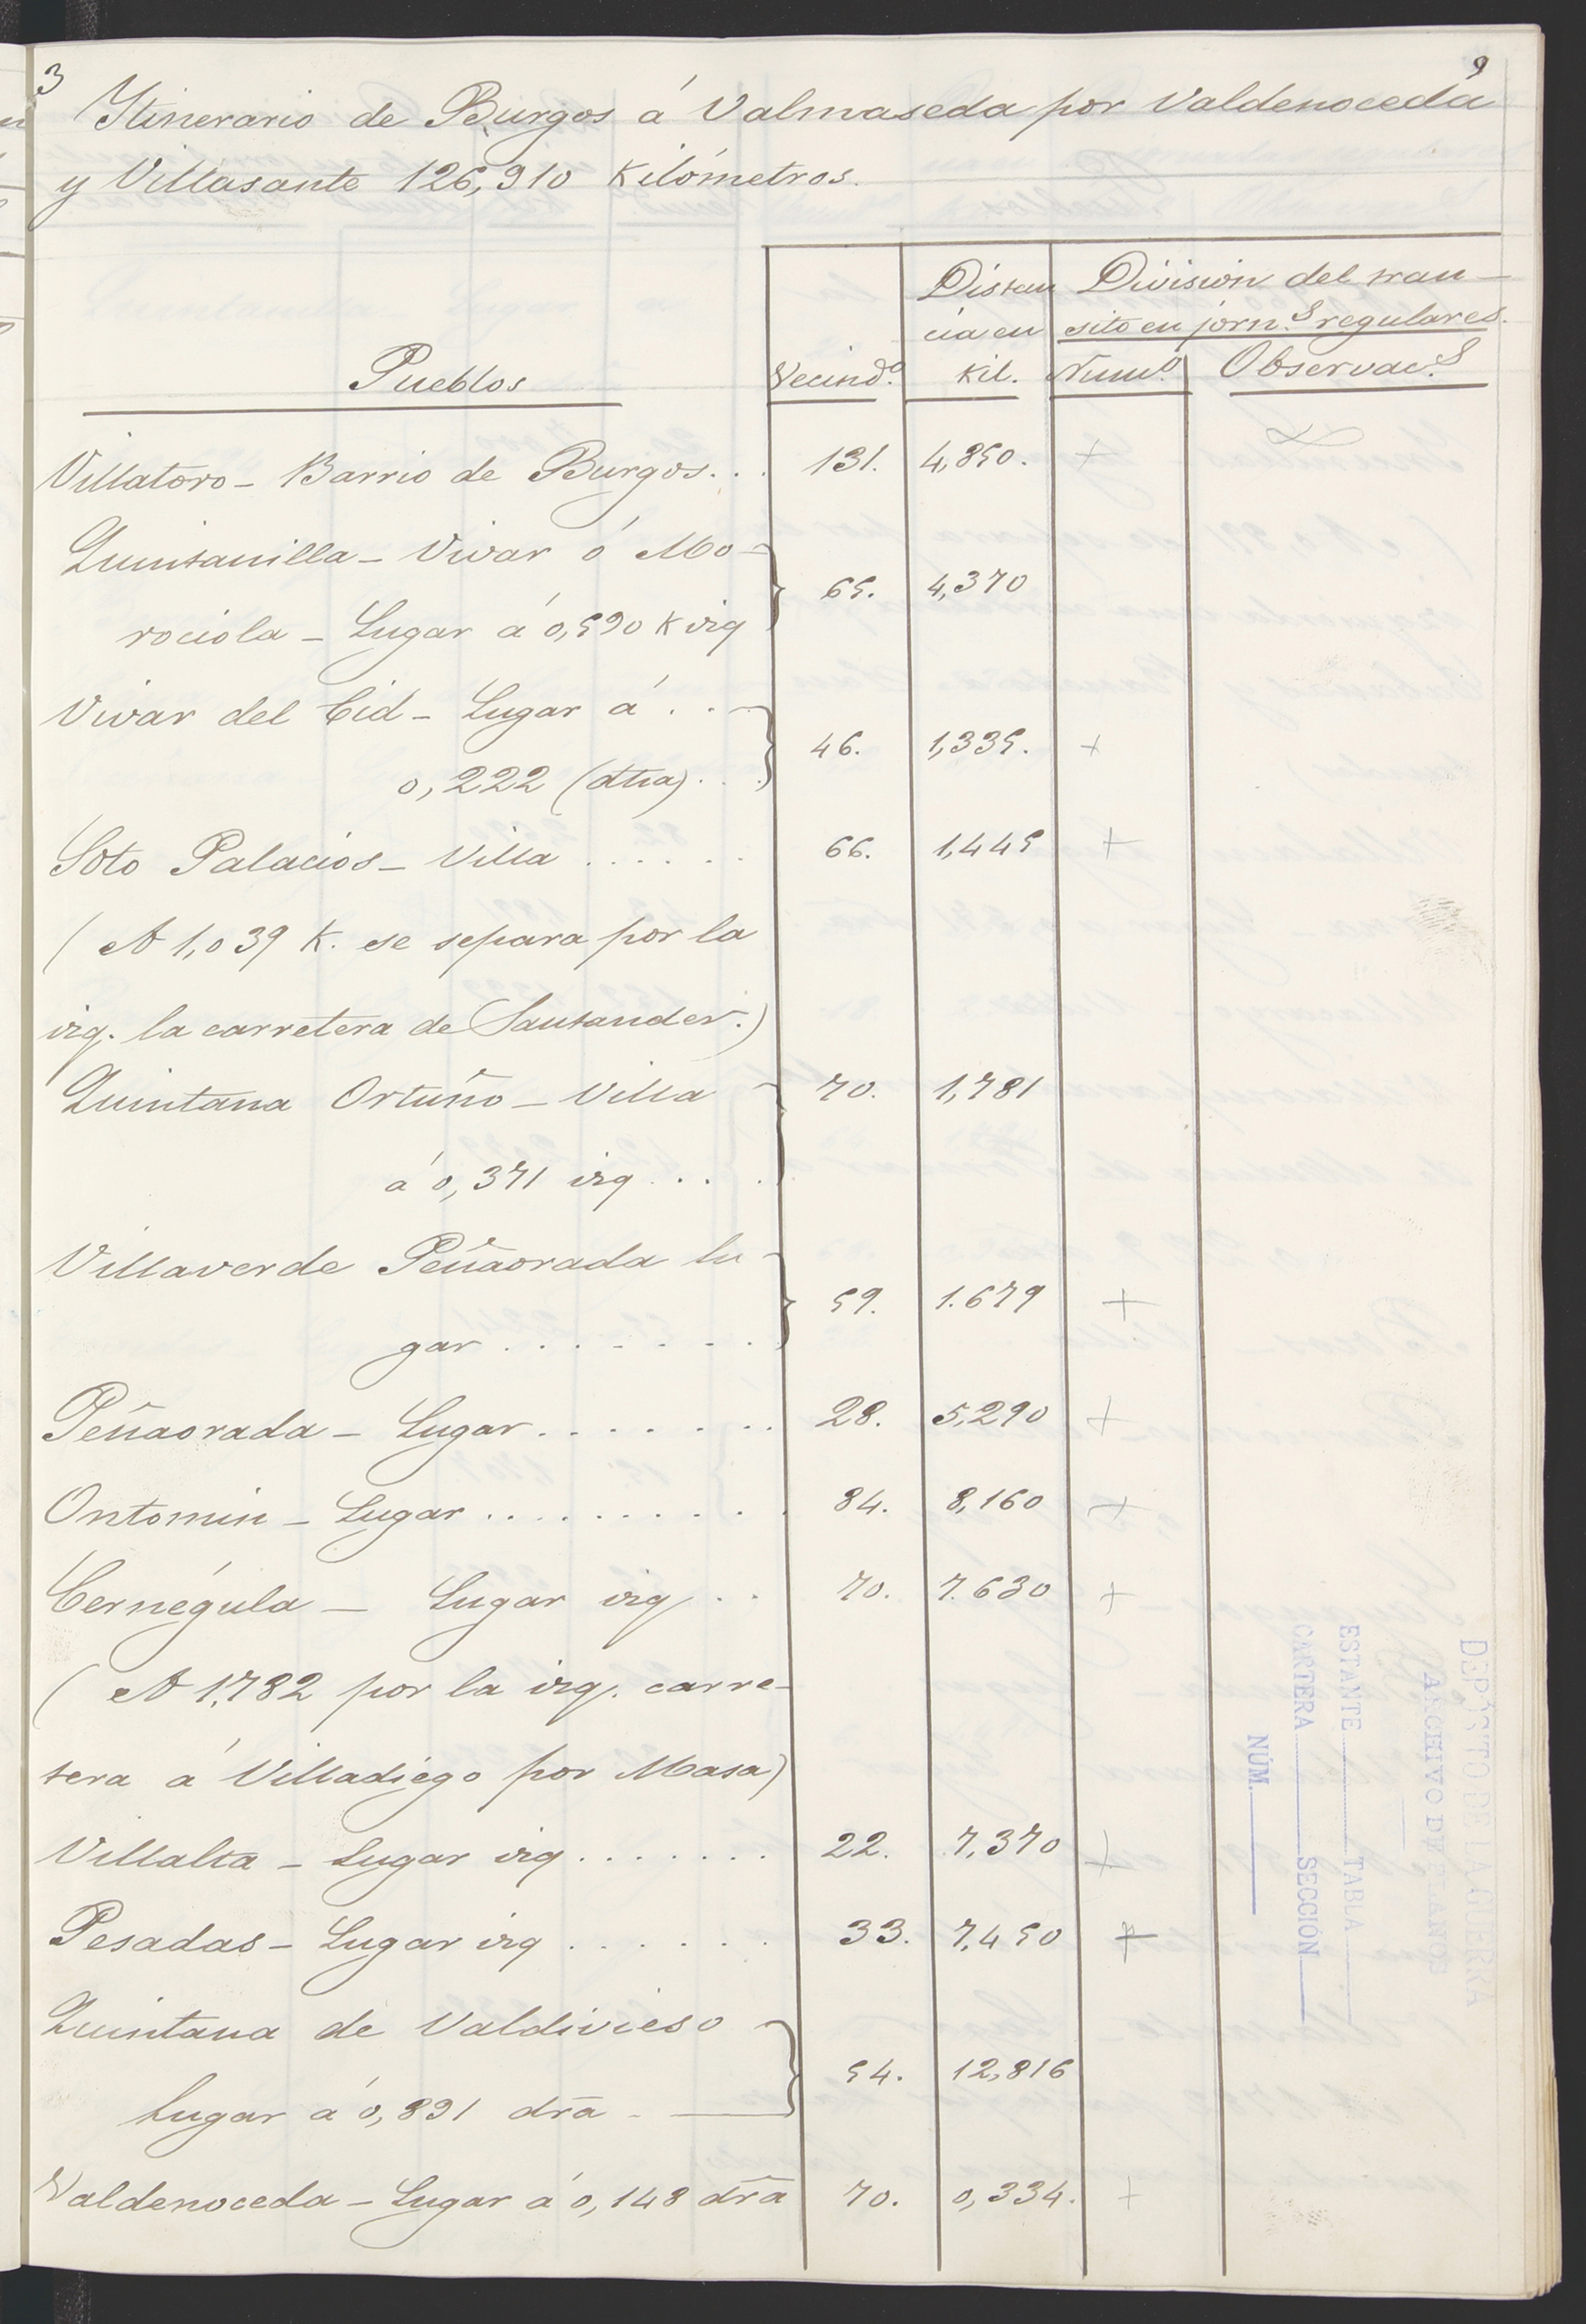 3
9
Itinerario de Burgos á Valmaseda por Valdenoceda
y Villasante 126,910 Kilómetros.
Pueblos
Vecind.º
Distan
cia en
Kil.
División del tran-
sito en jorn.s regulares.
Num.º
Observac.s
Villatoro - Barrio de Burgos... 131. 4,850. +
Quintanilla - Vivar ó Mo-
rociola - Lugar á 0,590 K izq 65. 4,370
Vivar del Cid - Lugar á ..
0,222 (dra) .. 46. 1,335. +
Soto Palacios - Villa ...... 66. 1,445 +
( A 1,039 K. se separa por la
izq. la carretera de Santander.)
Quintana Ortuño - Villa 70. 1,781
á 0,371 izq ...
Villaverde Peñaorada lu-
gar ....... 59. 1.679 +
Peñaorada - Lugar ....... 28. 5,290 +
Ontomin - Lugar .......... 84. 8,160 +
Cernégula - Lugar izq .. 70. 7.630 +
( A 1,782 por la izq. carre-
tera á Villadiego por Masa)
Villalta - Lugar izq ....... 22. 7,370 +
Pesadas - Lugar izq ...... 33. 7,450 +
Quintana de Valdivieso
Lugar á 0,891 dra - 54. 12,816
Valdenoceda - Lugar á 0,148 dra 70. 0,334. +
DEPÓSITO DE LA GUERRA
ARCHIVO DE PLANOS
ESTANTE TABLA
CARTERA SECCIÓN
NÚM.